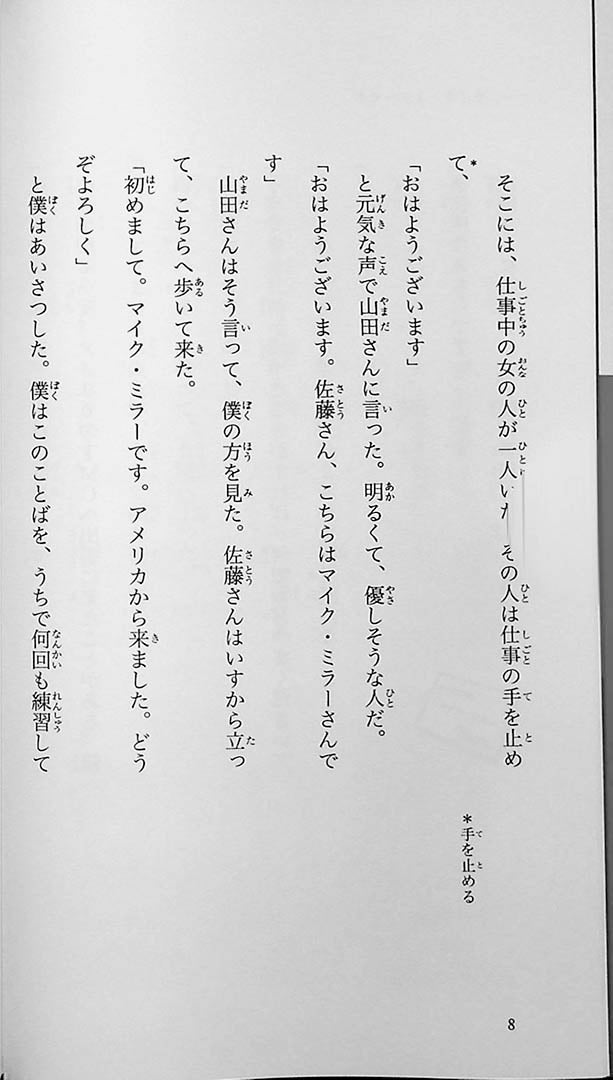 そこには、仕事中の女の人が一人いた その人は仕事の手を止め
て、*
「おはようございます」
と元気な声で山田さんに言った。明るくて、優しそうな人だ。
「おはようございます。佐藤さん、こちらはマイク・ミラーさんで
す」
山田さんはそう言って、僕の方を見た。佐藤さんはいすから立っ
て、こちらへ歩いて来た。
「初めまして。マイク・ミラーです。アメリカから来ました。どう
ぞよろしく」
と僕はあいさつした。僕はこのことばを、うちで何回も練習して
*手を止める
8